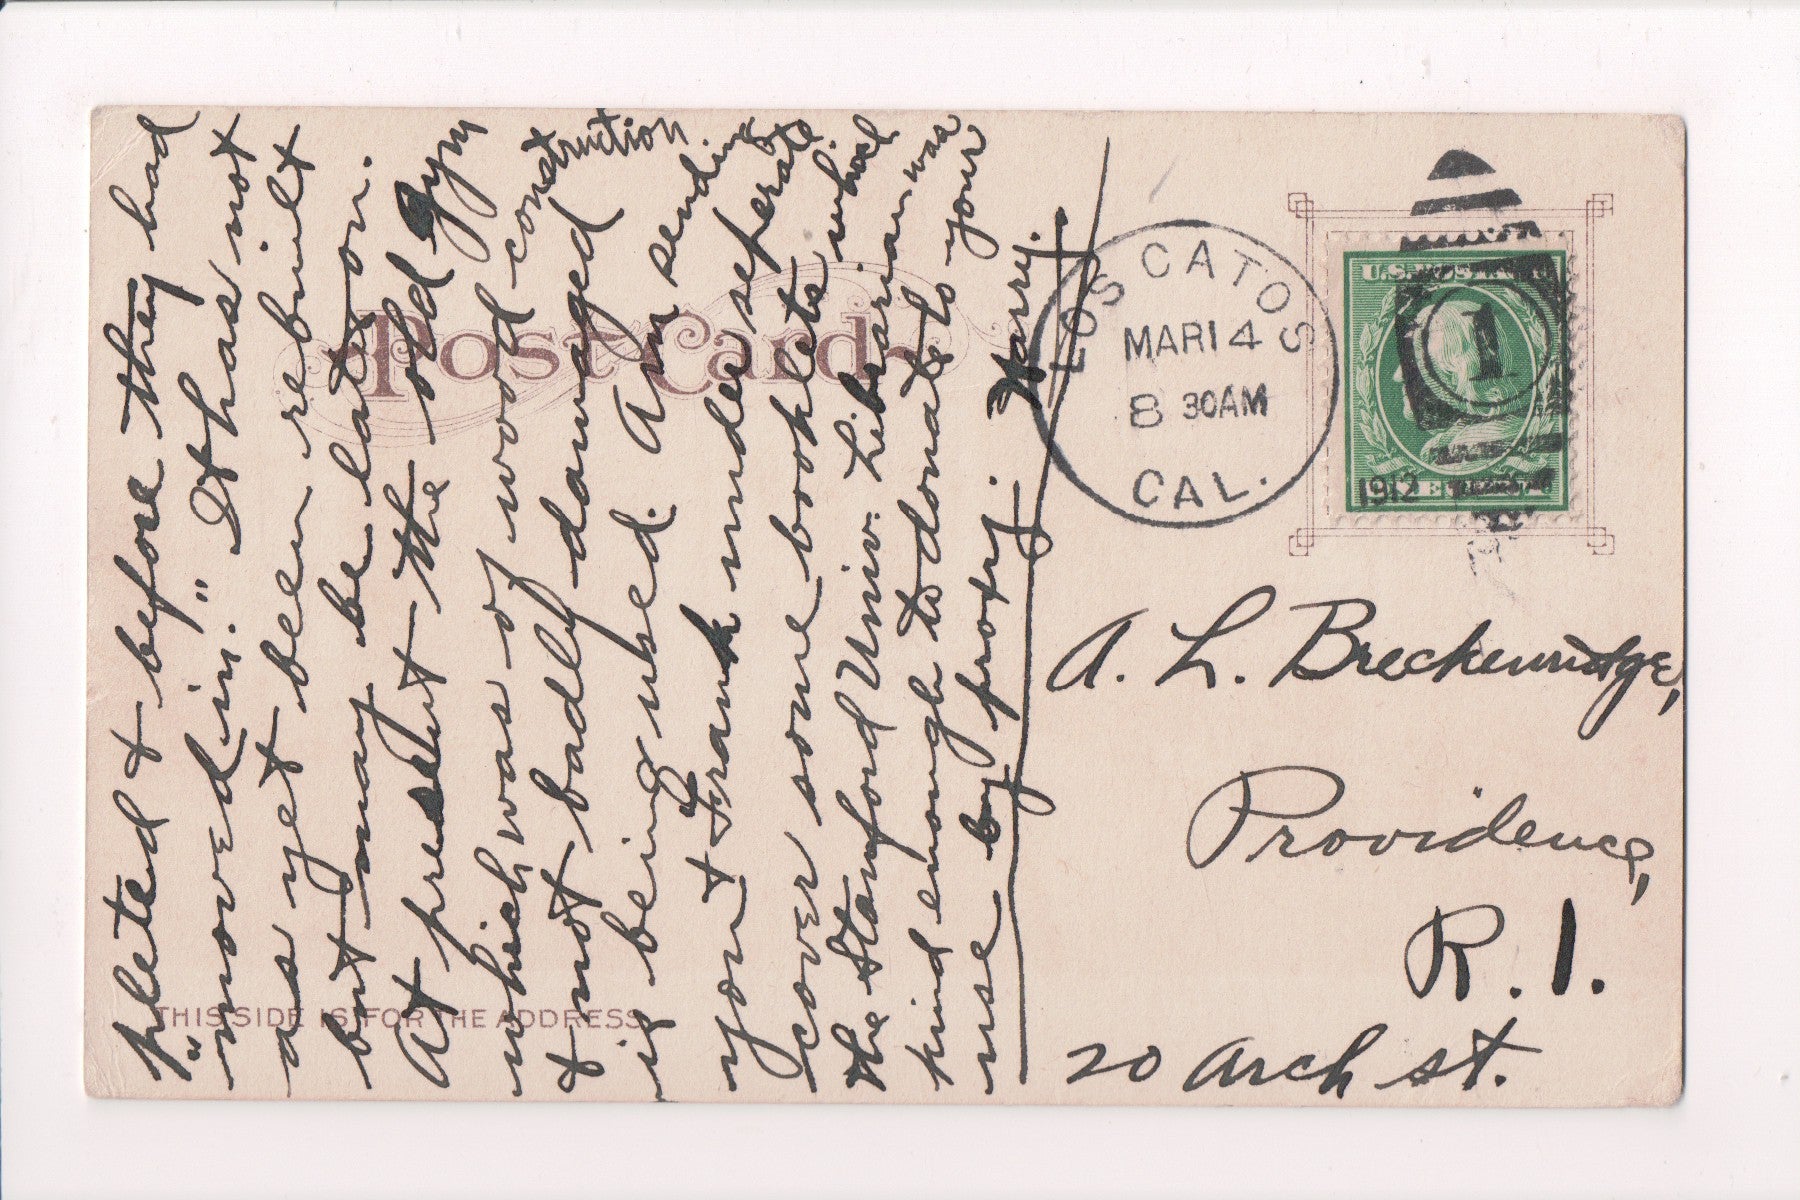 pleted & before they had
"moved in." It has not
as yet been rebuilt
but may be later on.
At present the old gym
which was of wood construction
& not badly damaged
is being used. Am sending
you & Frank under seperate
cover some booklets which
the Stanford Univ. Librarian was
kind enough to donate to your
use by proxy. Harry.
POST CARD
THIS SIDE IS FOR THE ADDRESS
LOS GATOS
MAR 14
8 30 AM
CAL.
1912
U.S. POSTAGE
1
A. L. Breckenridge,
Providence,
R. I.
20 Arch st.